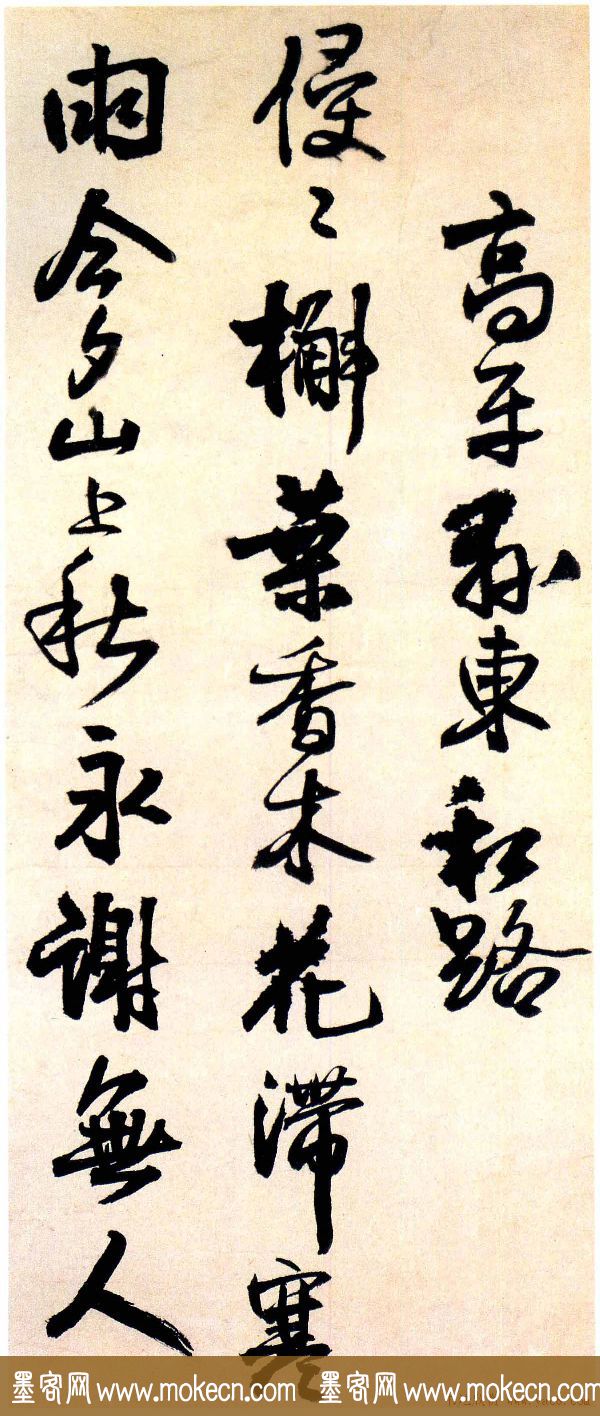 高平縣東私路
侵〻槲葉香木花滯寒
雨今夕山上秋永謝無人
墨客网 www.mokecn.com 墨客网 www.mokecn.com